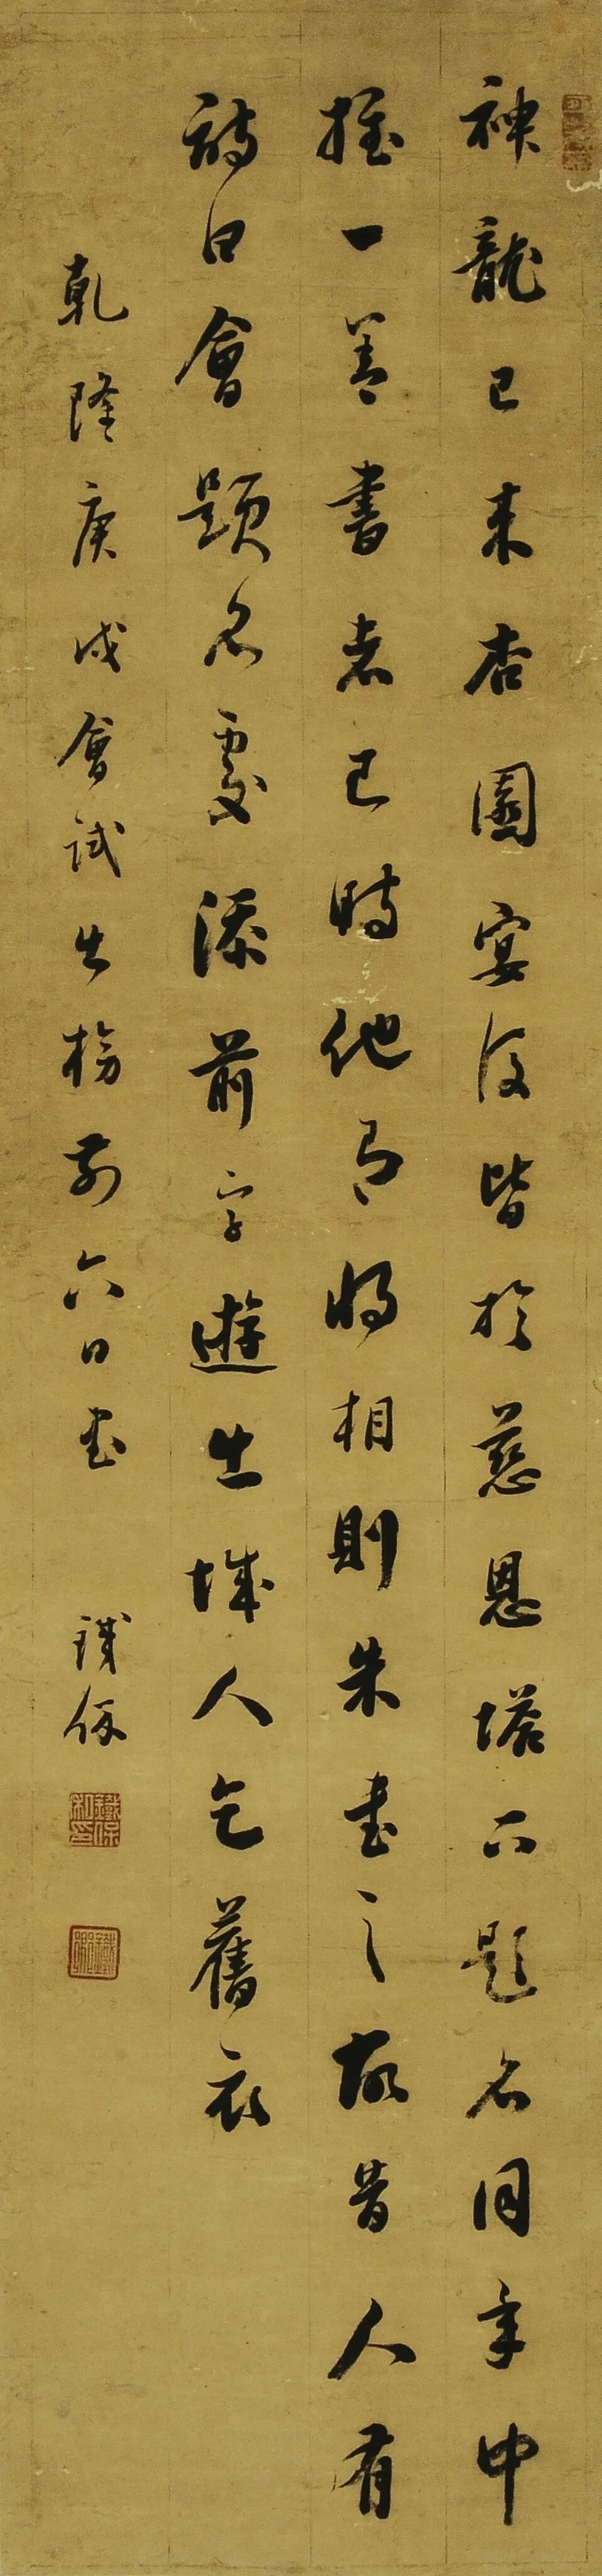 神龍已来杏園宴後皆於慈恩塔下題名同年中
推一善書者已時他有將相則朱書之故昔人有
詩曰會題名處添前字遊出城人乞舊衣
乾隆庚戌會試出榜前六日書 鐵保